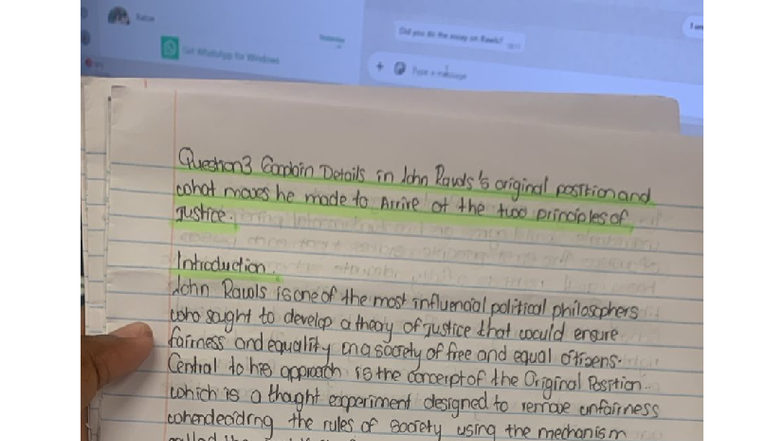 Ratoe
Get WhatsApp for Windows
Yesterday
Did you do the essay on Rawls?
Type a message
Question3 Explain Details in John Rawls's original position and
what moves he made to Arrive at the two principles of
justice.
Introduction.
John Rawls is one of the most influencial political philosophers
who sought to develop a theory of justice that would ensure
fairness and equality in a society of free and equal citizens.
Central to his approach is the concept of the Original Position
which is a thought experiment designed to remove unfairness
when deciding the rules of society using the mechanism
called the